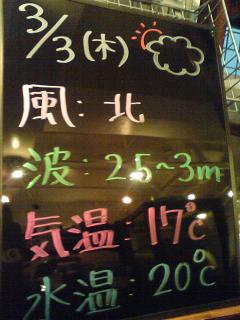 3/3(木)
風:北
波:2.5~3m
気温:17℃
水温:20℃